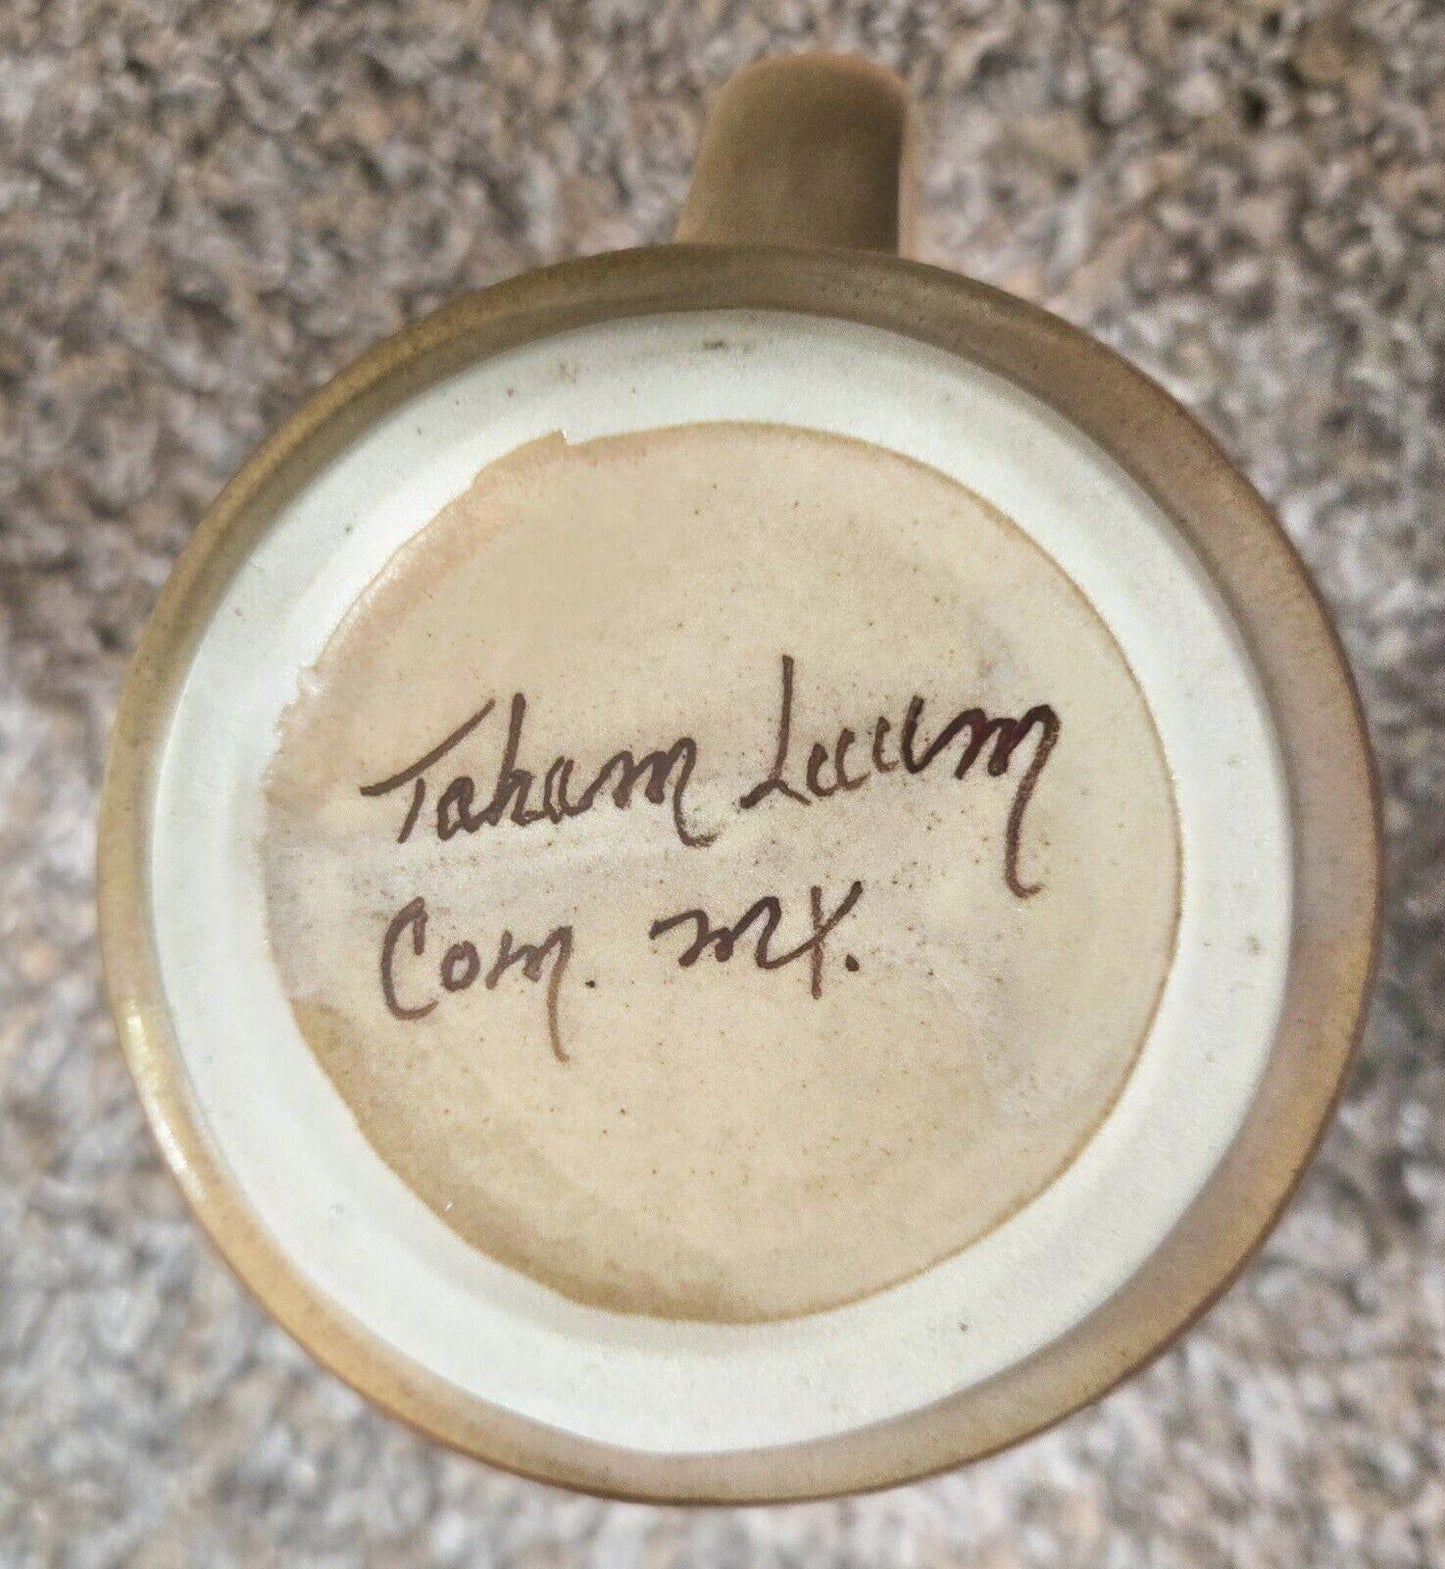 Taham Luum
Com. MX.